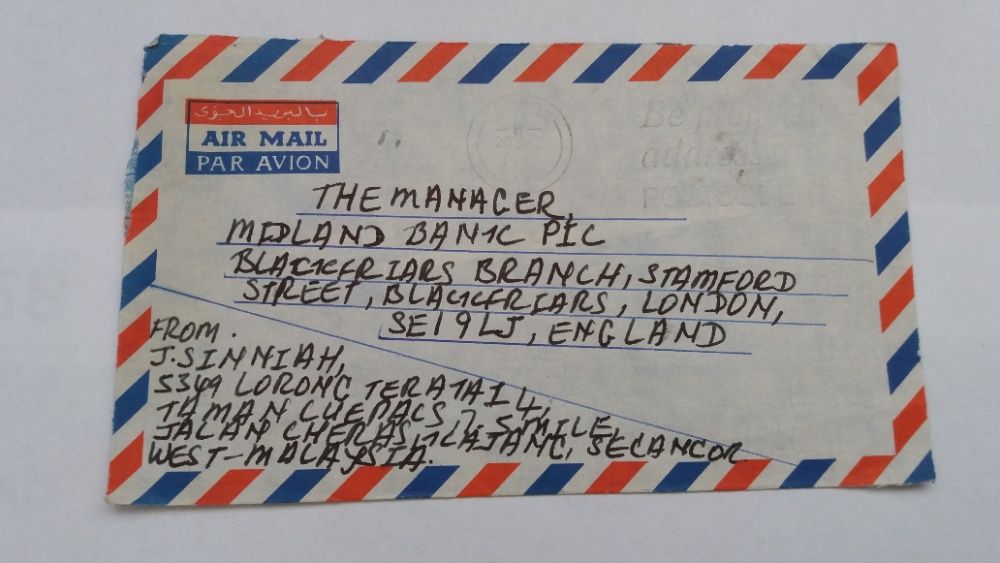 بالبريد الجوى
AIR MAIL
PAR AVION
20
Be
address
THE MANAGER,
MIDLAND BANK PLC
BLACKFRIARS BRANCH, STAMFORD
STREET, BLACKFRIARS, LONDON,
SE1 9LJ, ENGLAND
FROM.
J. SINNIAH,
5349 LORONG TERATAI 4,
TAMAN CUEPACS 7. 5 MILE,
JALAN CHERAS, KAJANG, SELANGOR
WEST-MALAYSIA.